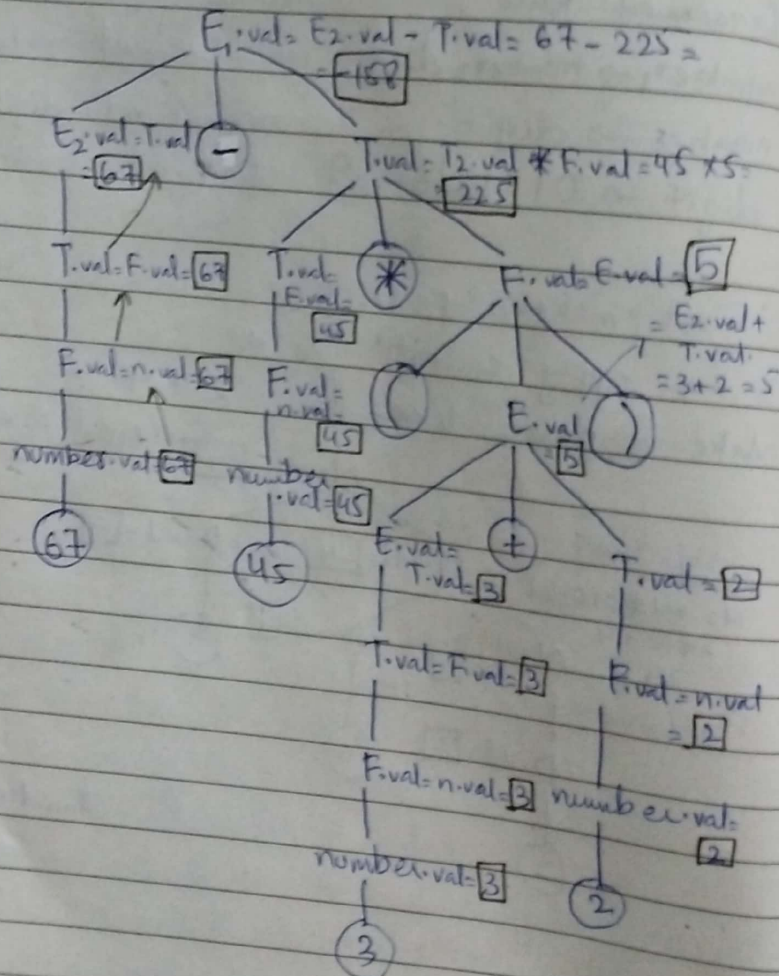 E₁.val = E2.val - T.val = 67 - 225 =
= -158
E2.val = T.val
= 67
-
T.val = T2.val * F.val = 45 x 5
= 225
T.val = F.val = 67
T.val =
F.val =
45
*
F.val = E.val = 5
= E2.val +
T.val
= 3 + 2 = 5
F.val = n.val = 67
F.val =
n.val =
45
(
E.val
= 5
)
number.val = 67
number
.val = 45
67
45
E.val =
T.val = 3
+
T.val = 2
T.val = F.val = 3
F.val = n.val
= 2
F.val = n.val = 3
number.val =
2
number.val = 3
2
3